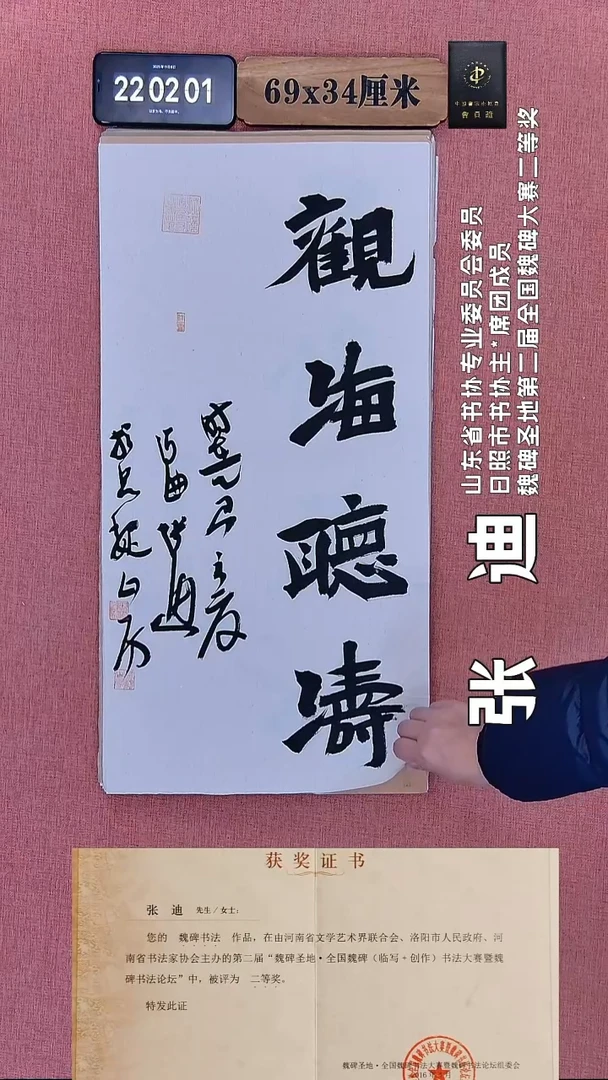 22 02 01
69x34厘米
觀海聽濤
山东省书协专业委员会委员
日照市书协主*席团成员
魏碑圣地第二届全国魏碑大赛二等奖
张 迪
获奖证书
张 迪 先生/女士:
您的 魏碑书法 作品，在由河南省文学艺术界联合会、洛阳市人民政府、河
南省书法家协会主办的第二届“魏碑圣地·全国魏碑（临写+创作）书法大赛暨魏
碑书法论坛”中，被评为 二等奖。
特发此证
魏碑圣地·全国魏碑书法大赛暨魏碑书法论坛组委会